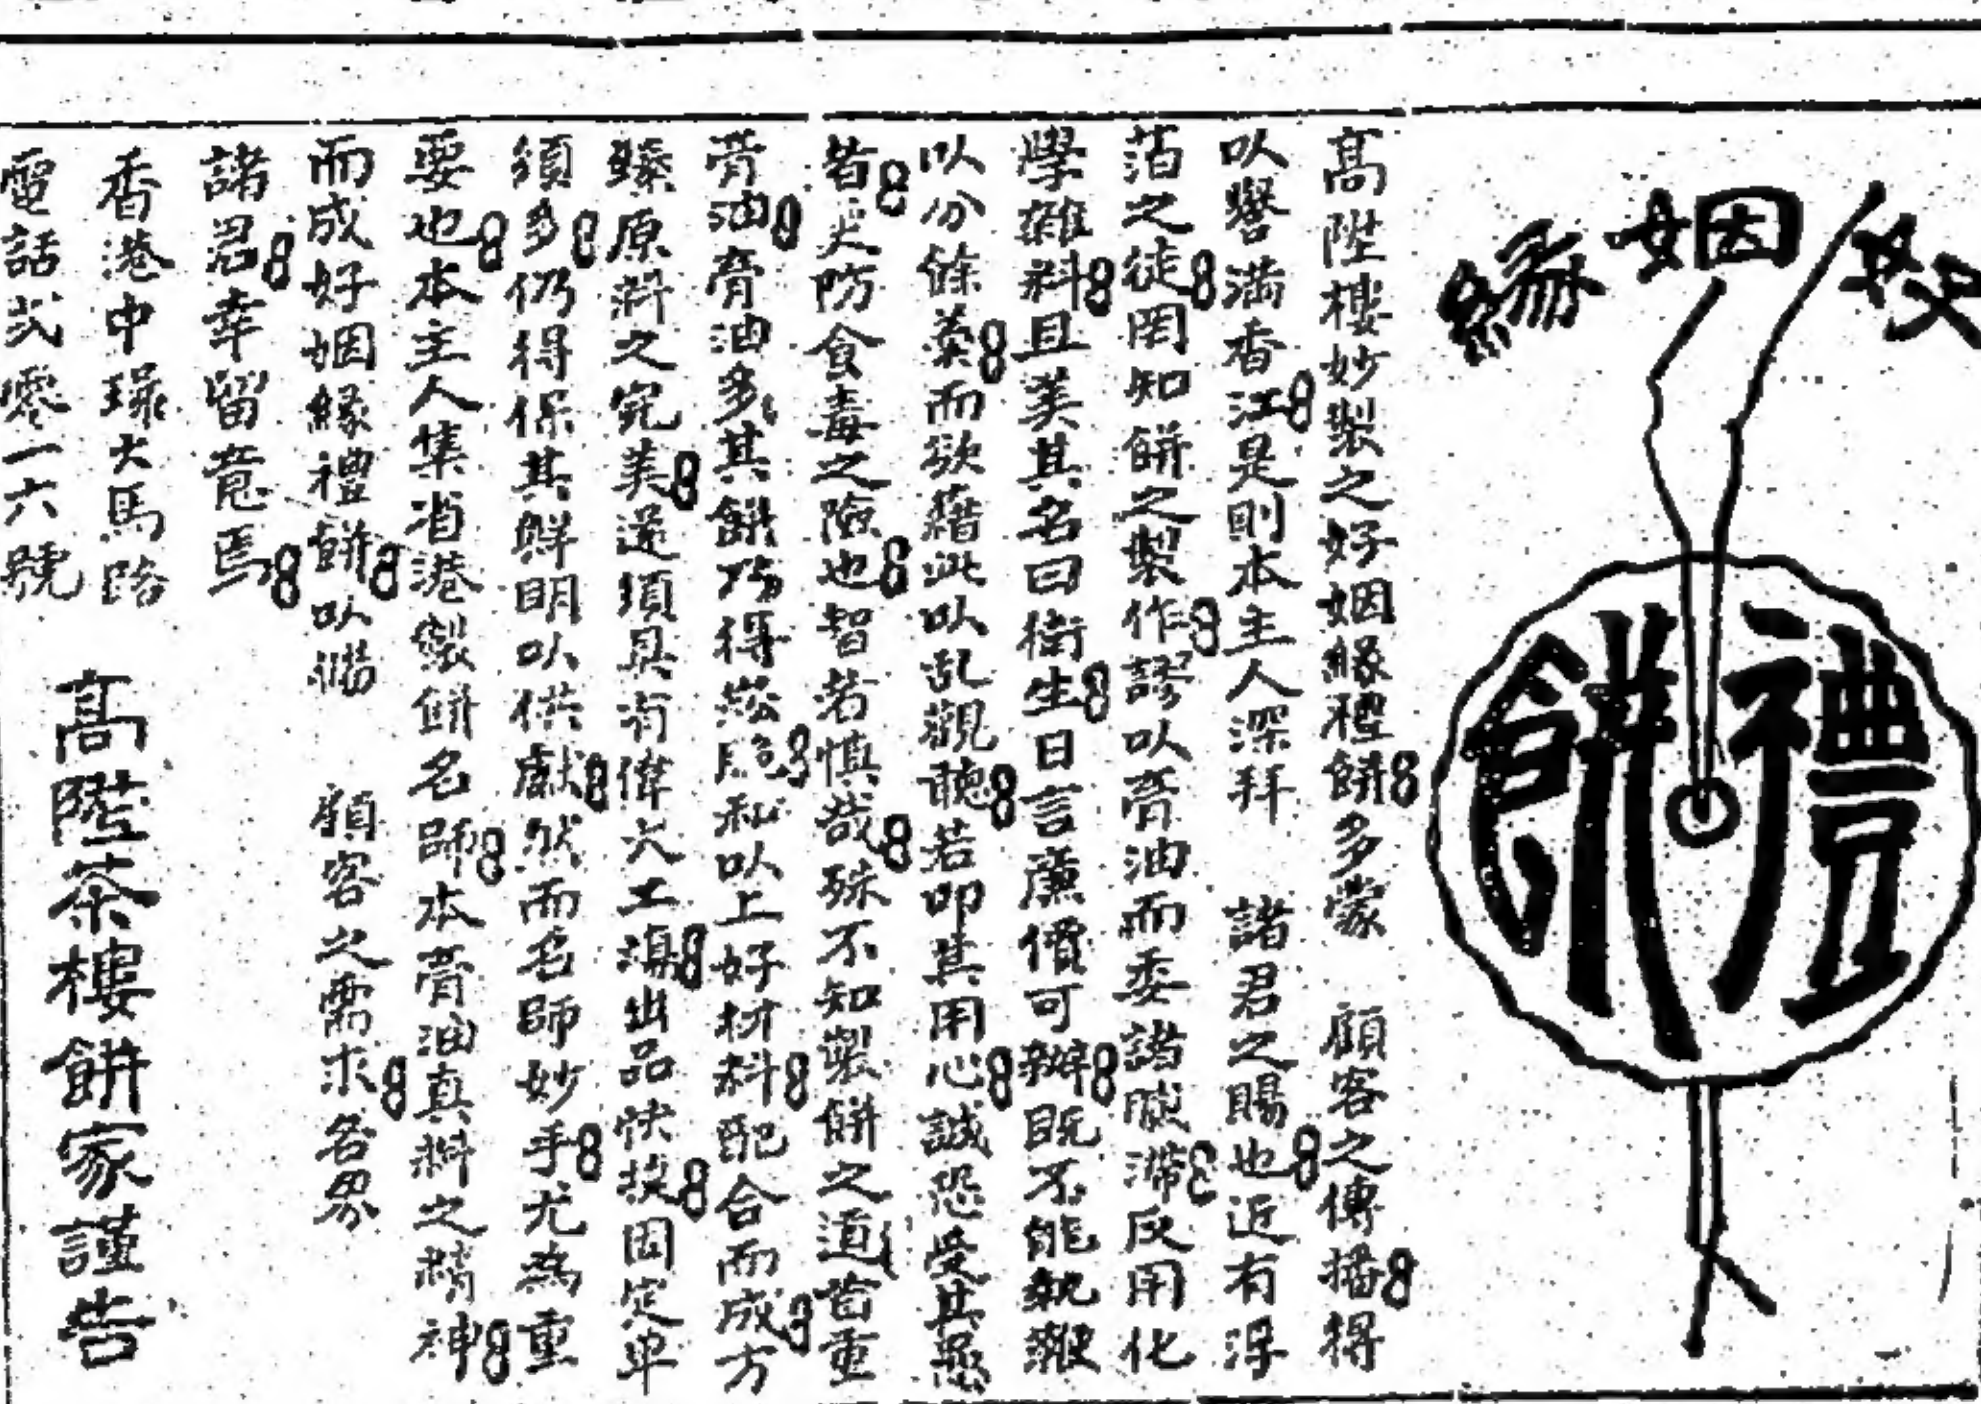 好姻緣
禮餅
高陞樓妙製之好姻緣禮餅多蒙 顧客之傳播得
以譽滿香江是則本主人深拜 諸君之賜也近有浮
萡之徒罔知餅之製作謬以膏油而委諸腻滯反用化
學雜料且美其名曰衛生日言廉價可辦既不能執鞭
以分餘羹而欲藉此以乱觀聽若叩其用心誠恐受其愚
者失防食毒之險也智者慎哉殊不知製餅之道首重
膏油膏油多其餅乃得崧脆私以上好材料配合而成方
臻原料之完美遂須具有偉大工塲出品快捷固定單
須多仍得保其鮮明以供獻然而名師妙手尤為重
要也本主人集省港製餅名師本膏油真料之精神
而成好姻緣禮餅以備 顧客之需求各界
諸君幸留意焉
香港中環大馬路
電話弍零一六號
高陞茶樓餅家謹告